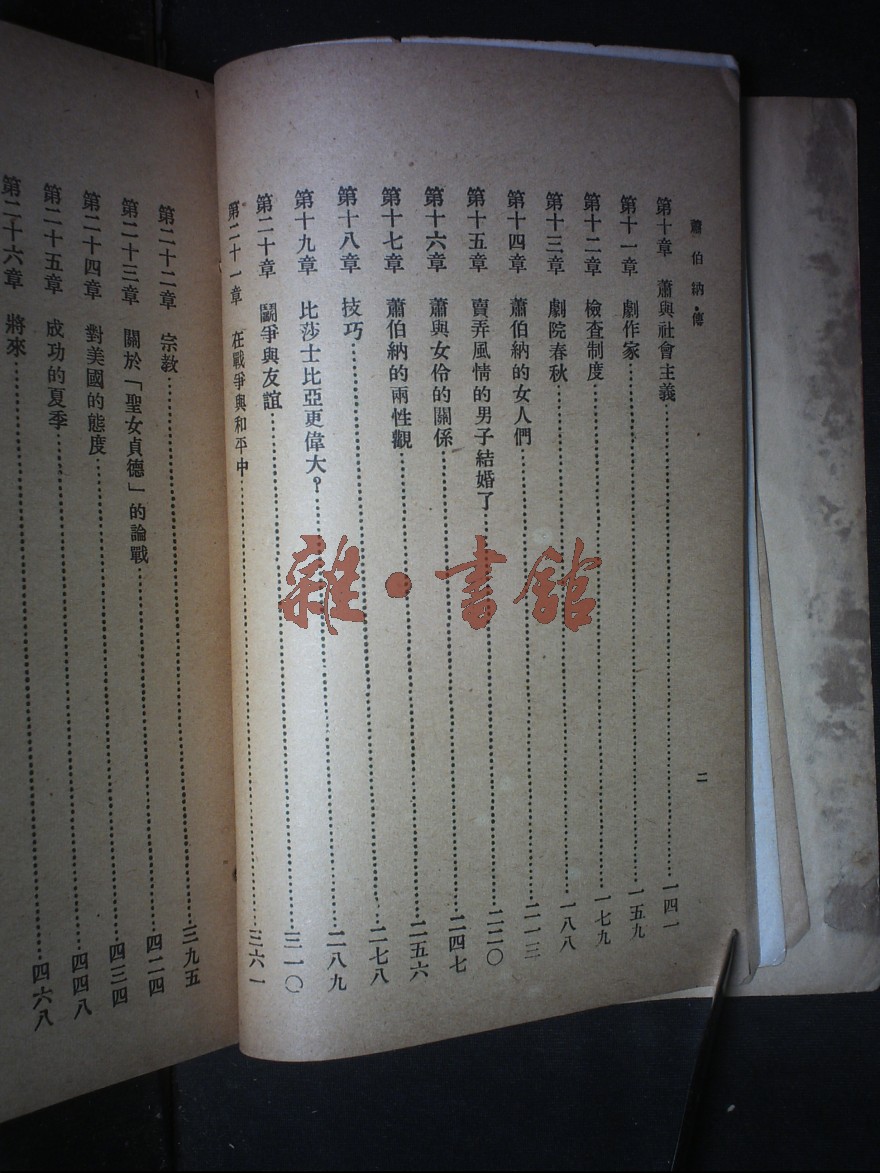 蕭伯納·傳
第十章 蕭與社會主義……一四一
第十一章 劇作家……一五九
第十二章 檢查制度……一七九
第十三章 劇院春秋……一八八
第十四章 蕭伯納的女人們……二一三
第十五章 賣弄風情的男子結婚了……二二〇
第十六章 蕭與女伶的關係……二四七
第十七章 蕭伯納的兩性觀……二五六
第十八章 技巧……二七八
第十九章 比莎士比亞更偉大?……二八九
第二十章 鬭爭與友誼……三一〇
第二十一章 在戰爭與和平中……三六一
二
第二十二章 宗教……三九五
第二十三章 關於「聖女貞德」的論戰……四二四
第二十四章 對美國的態度……四三四
第二十五章 成功的夏季……四四八
第二十六章 將來……四六八
雜·書館